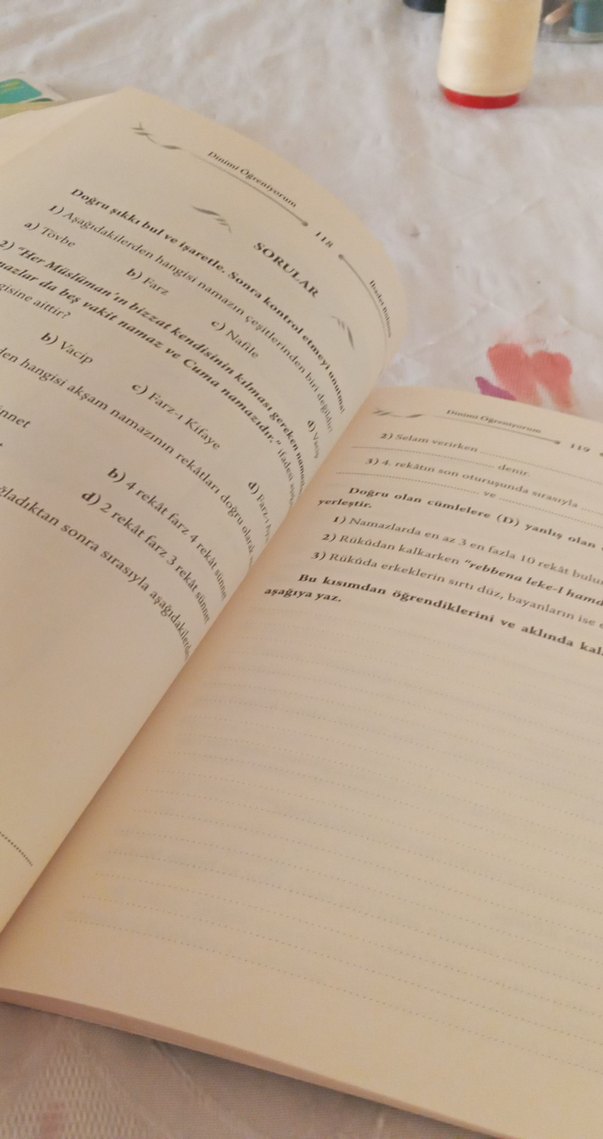 Dinimi Öğreniyorum
118
SORULAR
Doğru şıkkı bul ve işaretle. Sonra kontrol etmeyi unutma!
1) Aşağıdakilerden hangisi namazın çeşitlerinden biri değildir?
a) Tövbe
b) Farz
c) Nafile
d) Vacip
2) "Her Müslüman'ın bizzat kendisinin kılması gereken
da beş vakit namaz ve Cuma namazıdır."
aittir?
b) Vacip
c) Farz-ı Kifaye
d) Farz-ı
hangisi akşam namazının rekâtları doğru olarak
b) 4 rekât farz 4 rekât sünnet
d) 2 rekât farz 3 rekât sünnet
sonra sırasıyla
Dinimi Öğreniyorum
119
2) Selam verirken
denir.
3) 4. rekâtın son oturuşunda sırasıyla
ve
Doğru olan cümlelere (D) yanlış olan
yerleştir.
1) Namazlarda en az 3 en fazla 10 rekât
2) Rükûdan kalkarken "rebbena leke-l
3) Rükûda erkeklerin sırtı düz, bayanların ise
Bu kısımdan öğrendiklerini ve aklında
aşağıya yaz.